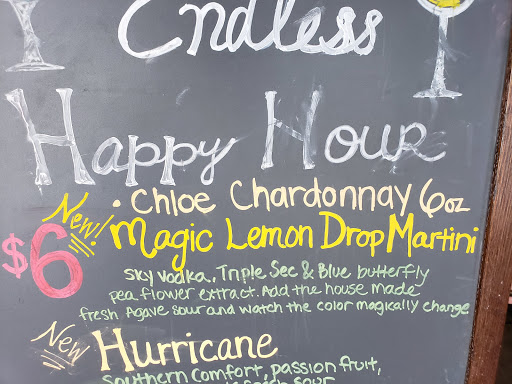 Endless
Happy Hour
• Chloe Chardonnay 6oz
New! Magic Lemon Drop Martini
$6
Sky vodka, Triple Sec & Blue butterfly
pea flower extract. Add the house made
fresh Agave sour and watch the color magically change
New Hurricane
Southern Comfort, passion fruit,
fresh sour